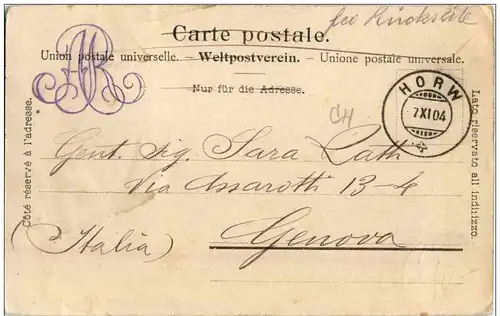 Carte postale.
Union postale universelle. — Weltpostverein. — Unione postale universale.
Nur für die Adresse.
Côté réservé à l'adresse.
Lato riservato all indirizzo.
HORW
7XI04
CH
Gent. Sig. Sara
Via Assarotti 13-4
(Italia) Genova